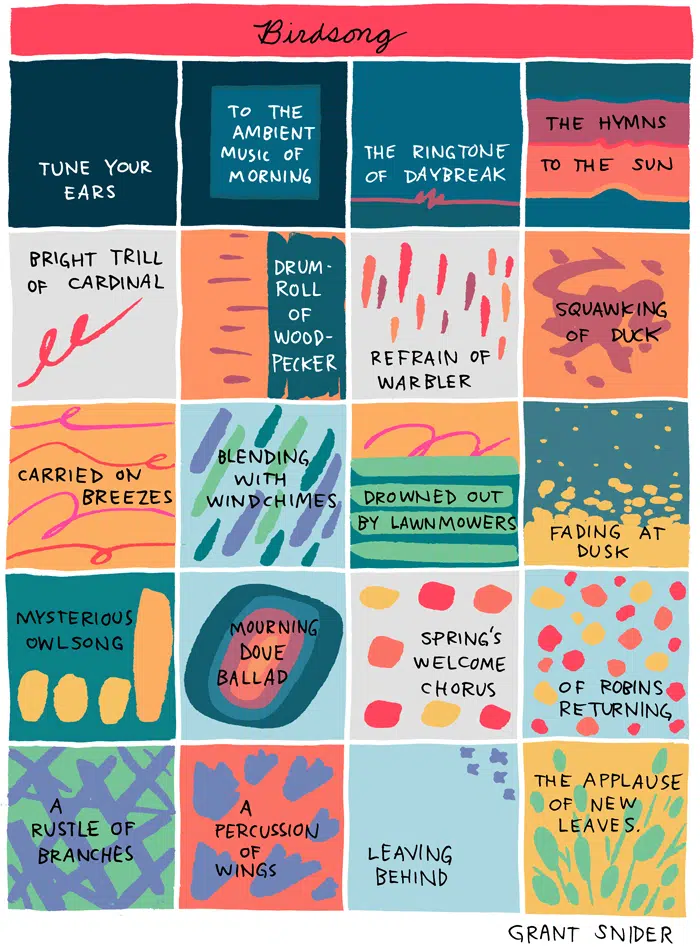 Birdsong
TUNE YOUR
EARS
TO THE
AMBIENT
MUSIC OF
MORNING
THE RINGTONE
OF DAYBREAK
THE HYMNS
TO THE SUN
BRIGHT TRILL
OF CARDINAL
DRUM-
ROLL
OF
WOOD-
PECKER
REFRAIN OF
WARBLER
SQUAWKING
OF DUCK
CARRIED ON
BREEZES
BLENDING
WITH
WINDCHIMES
DROWNED OUT
BY LAWNMOWERS
FADING AT
DUSK
MYSTERIOUS
OWLSONG
MOURNING
DOVE
BALLAD
SPRING'S
WELCOME
CHORUS
OF ROBINS
RETURNING
A
RUSTLE OF
BRANCHES
A
PERCUSSION
OF
WINGS
LEAVING
BEHIND
THE APPLAUSE
OF NEW
LEAVES.
GRANT SNIDER